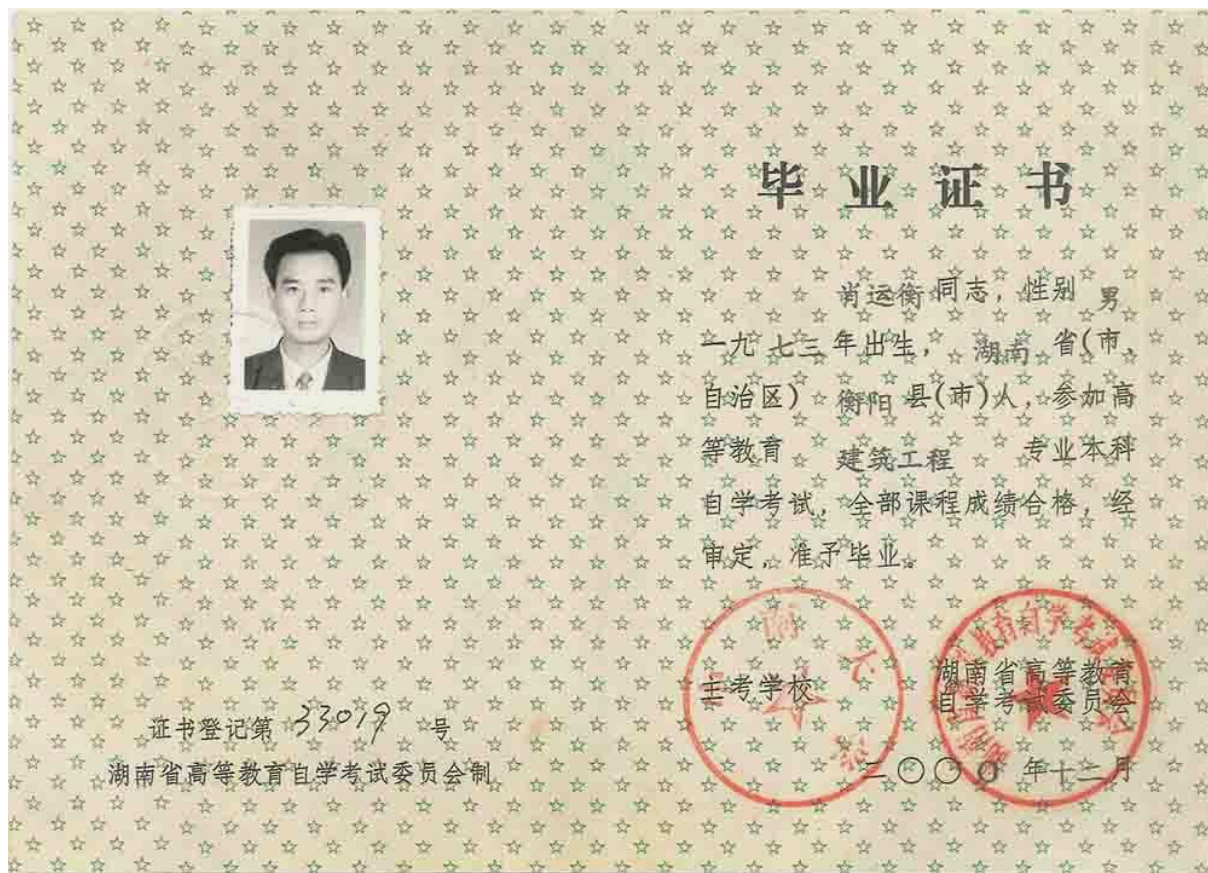 毕业证书
肖运衡同志，性别 男
一九七三年出生， 湖南 省(市，
自治区) 衡阳 县(市)人，参加高
等教育 建筑工程 专业本科
自学考试，全部课程成绩合格，经
审定，准予毕业。
主考学校
湖南省高等教育
自学考试委员会
二〇〇〇年十二月
证书登记第 33019 号
湖南省高等教育自学考试委员会制